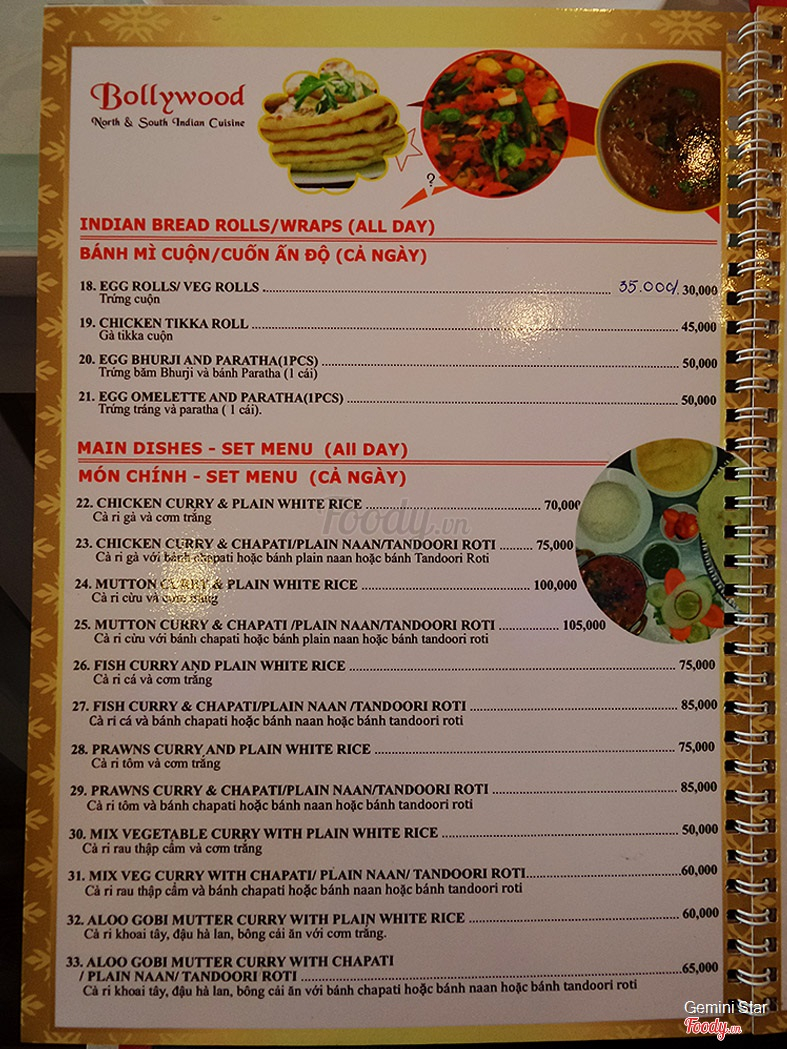 Bollywood
North & South Indian Cuisine
?
INDIAN BREAD ROLLS/WRAPS (ALL DAY)
BÁNH MÌ CUỘN/CUỐN ẤN ĐỘ (CẢ NGÀY)
18. EGG ROLLS/ VEG ROLLS 35.000/ 30,000
Trứng cuộn
19. CHICKEN TIKKA ROLL 45,000
Gà tikka cuộn
20. EGG BHURJI AND PARATHA(1PCS) 50,000
Trứng băm Bhurji và bánh Paratha (1 cái)
21. EGG OMELETTE AND PARATHA(1PCS) 50,000
Trứng tráng và paratha ( 1 cái).
MAIN DISHES - SET MENU (All DAY)
MÓN CHÍNH - SET MENU (CẢ NGÀY)
22. CHICKEN CURRY & PLAIN WHITE RICE 70,000
Cà ri gà và cơm trắng
Foody.vn
23. CHICKEN CURRY & CHAPATI/PLAIN NAAN/TANDOORI ROTI 75,000
Cà ri gà với bánh chapati hoặc bánh plain naan hoặc bánh Tandoori Roti
24. MUTTON CURRY & PLAIN WHITE RICE 100,000
Cà ri cừu và cơm trắng
25. MUTTON CURRY & CHAPATI /PLAIN NAAN/TANDOORI ROTI 105,000
Cà ri cừu với bánh chapati hoặc bánh plain naan hoặc bánh tandoori roti
26. FISH CURRY AND PLAIN WHITE RICE 75,000
Cà ri cá và cơm trắng
27. FISH CURRY & CHAPATI/PLAIN NAAN /TANDOORI ROTI 85,000
Cà ri cá và bánh chapati hoặc bánh naan hoặc bánh tandoori roti
28. PRAWNS CURRY AND PLAIN WHITE RICE 75,000
Cà ri tôm và cơm trắng
29. PRAWNS CURRY & CHAPATI/PLAIN NAAN/TANDOORI ROTI 85,000
Cà ri tôm và bánh chapati hoặc bánh naan hoặc bánh tandoori roti
30. MIX VEGETABLE CURRY WITH PLAIN WHITE RICE 50,000
Cà ri rau thập cẩm và cơm trắng
31. MIX VEG CURRY WITH CHAPATI/ PLAIN NAAN/ TANDOORI ROTI 60,000
Cà ri rau thập cẩm và bánh chapati hoặc bánh naan hoặc bánh tandoori roti
32. ALOO GOBI MUTTER CURRY WITH PLAIN WHITE RICE 60,000
Cà ri khoai tây, đậu hà lan, bông cải ăn với cơm trắng.
33. ALOO GOBI MUTTER CURRY WITH CHAPATI
/ PLAIN NAAN/ TANDOORI ROTI 65,000
Cà ri khoai tây, đậu hà lan, bông cải ăn với bánh chapati hoặc bánh naan hoặc bánh tandoori roti
Gemini Star
Foody.vn